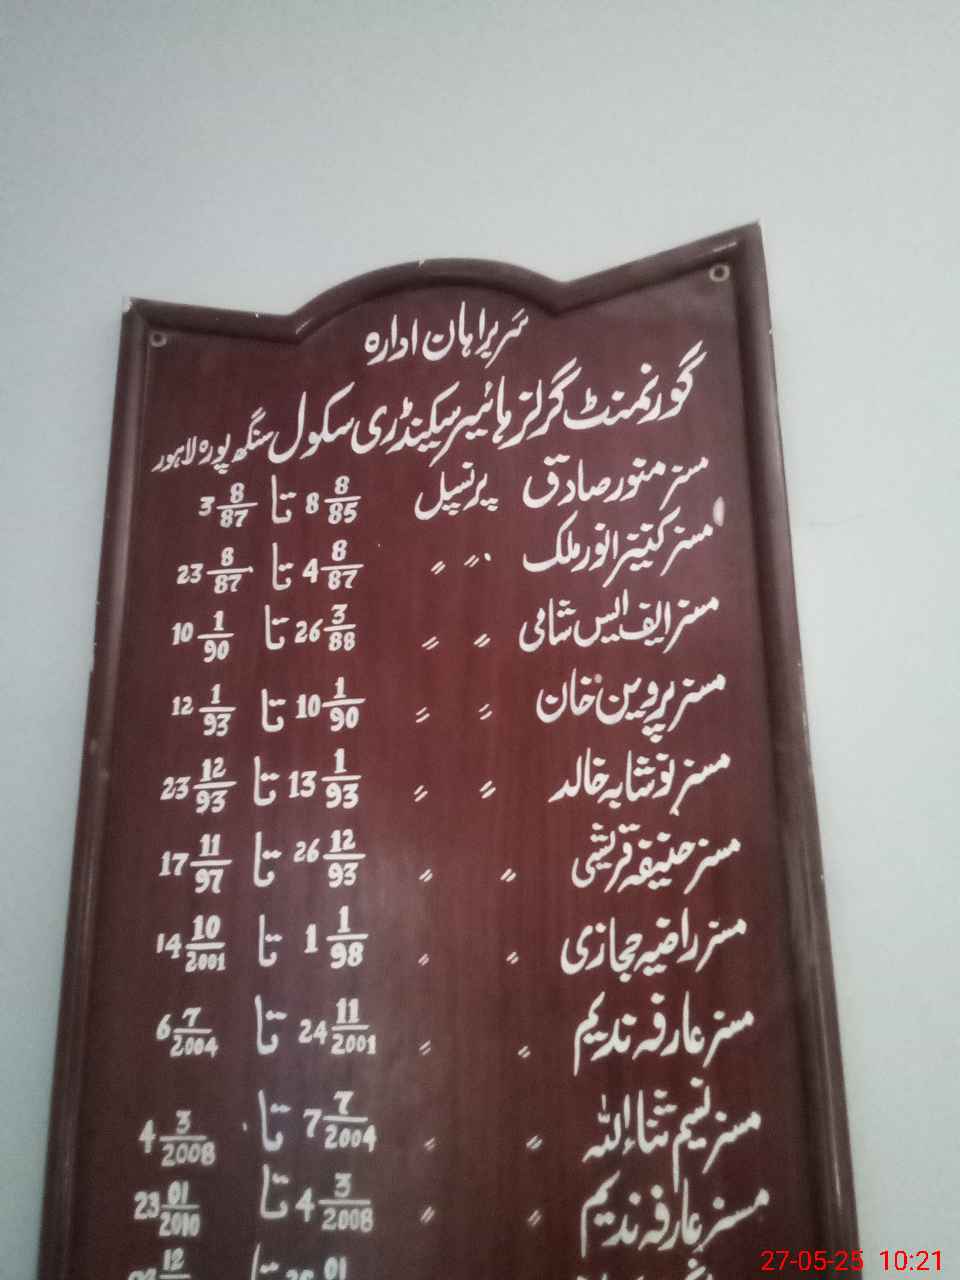 سربراہان ادارہ
گورنمنٹ گرلز ہائیر سیکنڈری سکول سنگھ پورہ لاہور
مسز منور صادق پرنسپل 8 8/85 تا 3 8/87
مسز کنیز انور ملک 〃 〃 4 8/87 تا 23 8/87
مسز ایف ایس شامی 〃 〃 26 3/88 تا 10 1/90
مسز پروین خان 〃 〃 10 1/90 تا 12 1/93
مسز نوشابہ خالد 〃 〃 13 1/93 تا 23 12/93
مسز حنیفہ قریشی 〃 〃 26 12/93 تا 17 11/97
مسز راضیہ حجازی 〃 〃 1 1/98 تا 14 10/2001
مسز عارفہ ندیم 〃 〃 24 11/2001 تا 6 7/2004
مسز نسیم ثناء اللہ 〃 〃 7 7/2004 تا 4 3/2008
مسز عارفہ ندیم 〃 〃 4 3/2008 تا 23 01/2010
01 تا 12
27-05-25 10:21